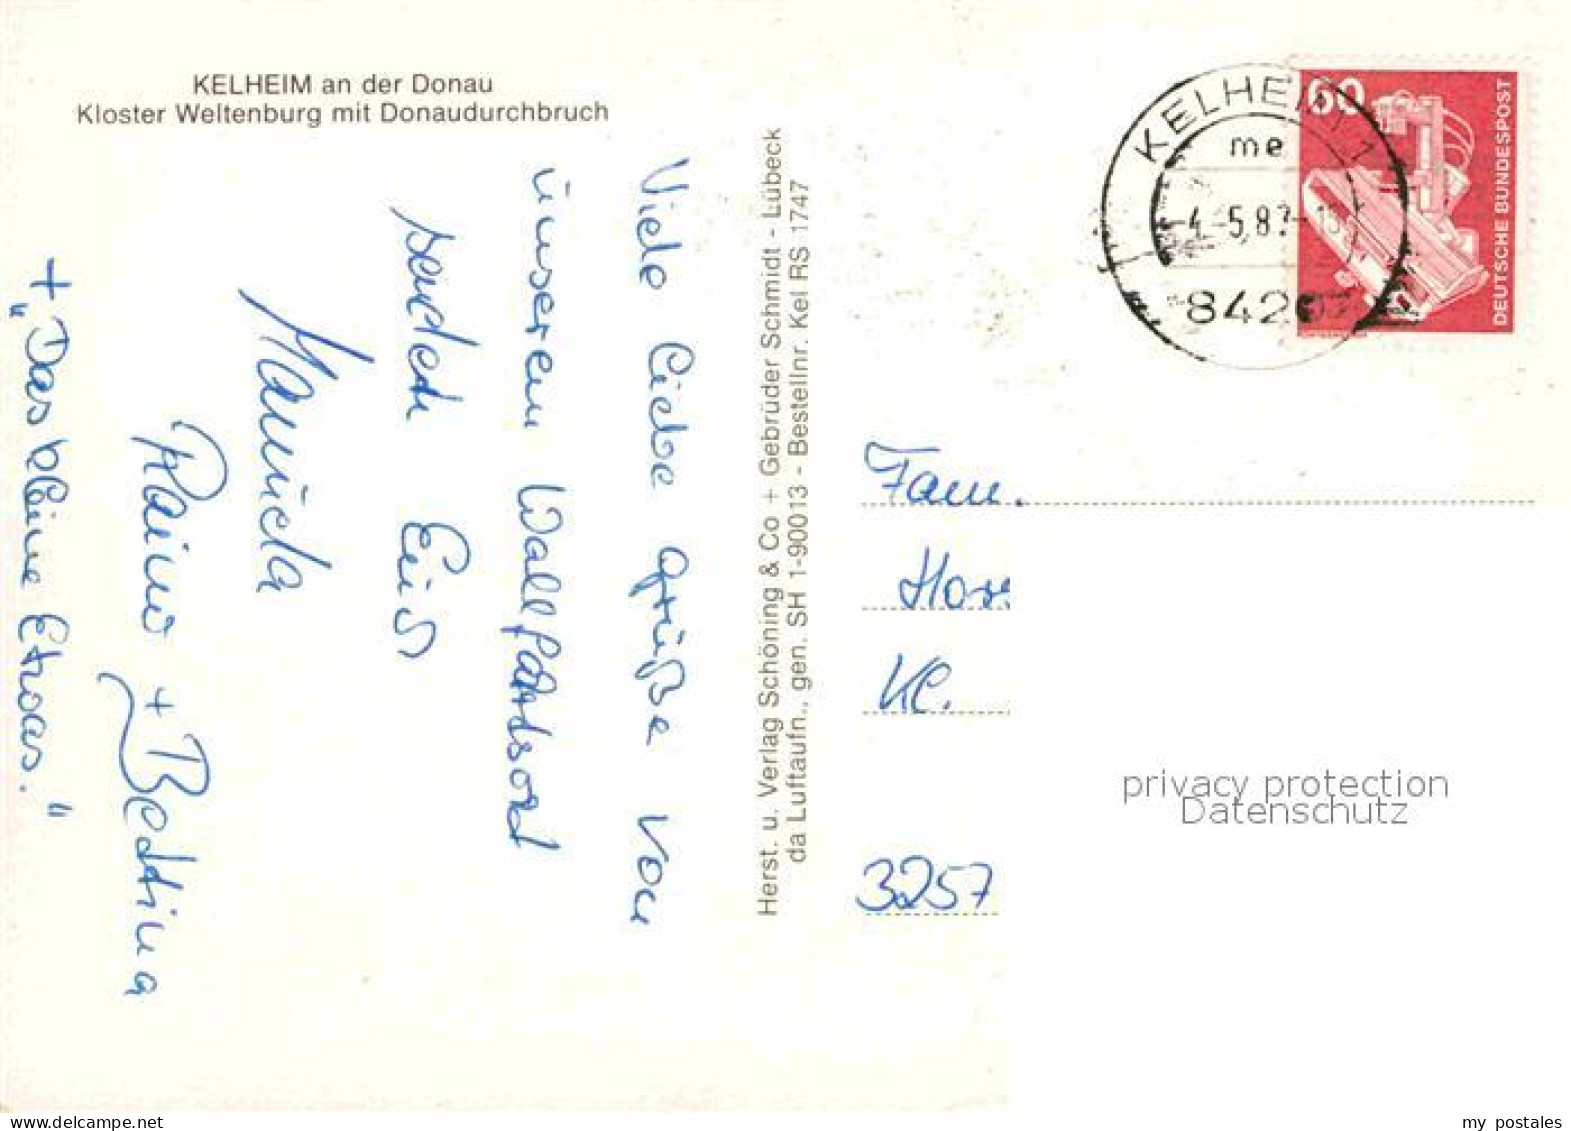 KELHEIM an der Donau
Kloster Weltenburg mit Donaudurchbruch
Viele liebe Grüße von
unserem Wallfahrtsort
senden Euch
Manuela
Raino + Bettina
+ "Das kleine Etwas."
Herst. u. Verlag Schöning & Co + Gebrüder Schmidt - Lübeck
da Luftaufn., gen. SH 1-90013 - Bestellnr. Kel RS 1747
KELHEIM 1
me
-4.-5.8
8420
60
DEUTSCHE BUNDESPOST
Fam.
Kl.
3257
privacy protection
Datenschutz
www.ansichtskartenversand.com
my postales